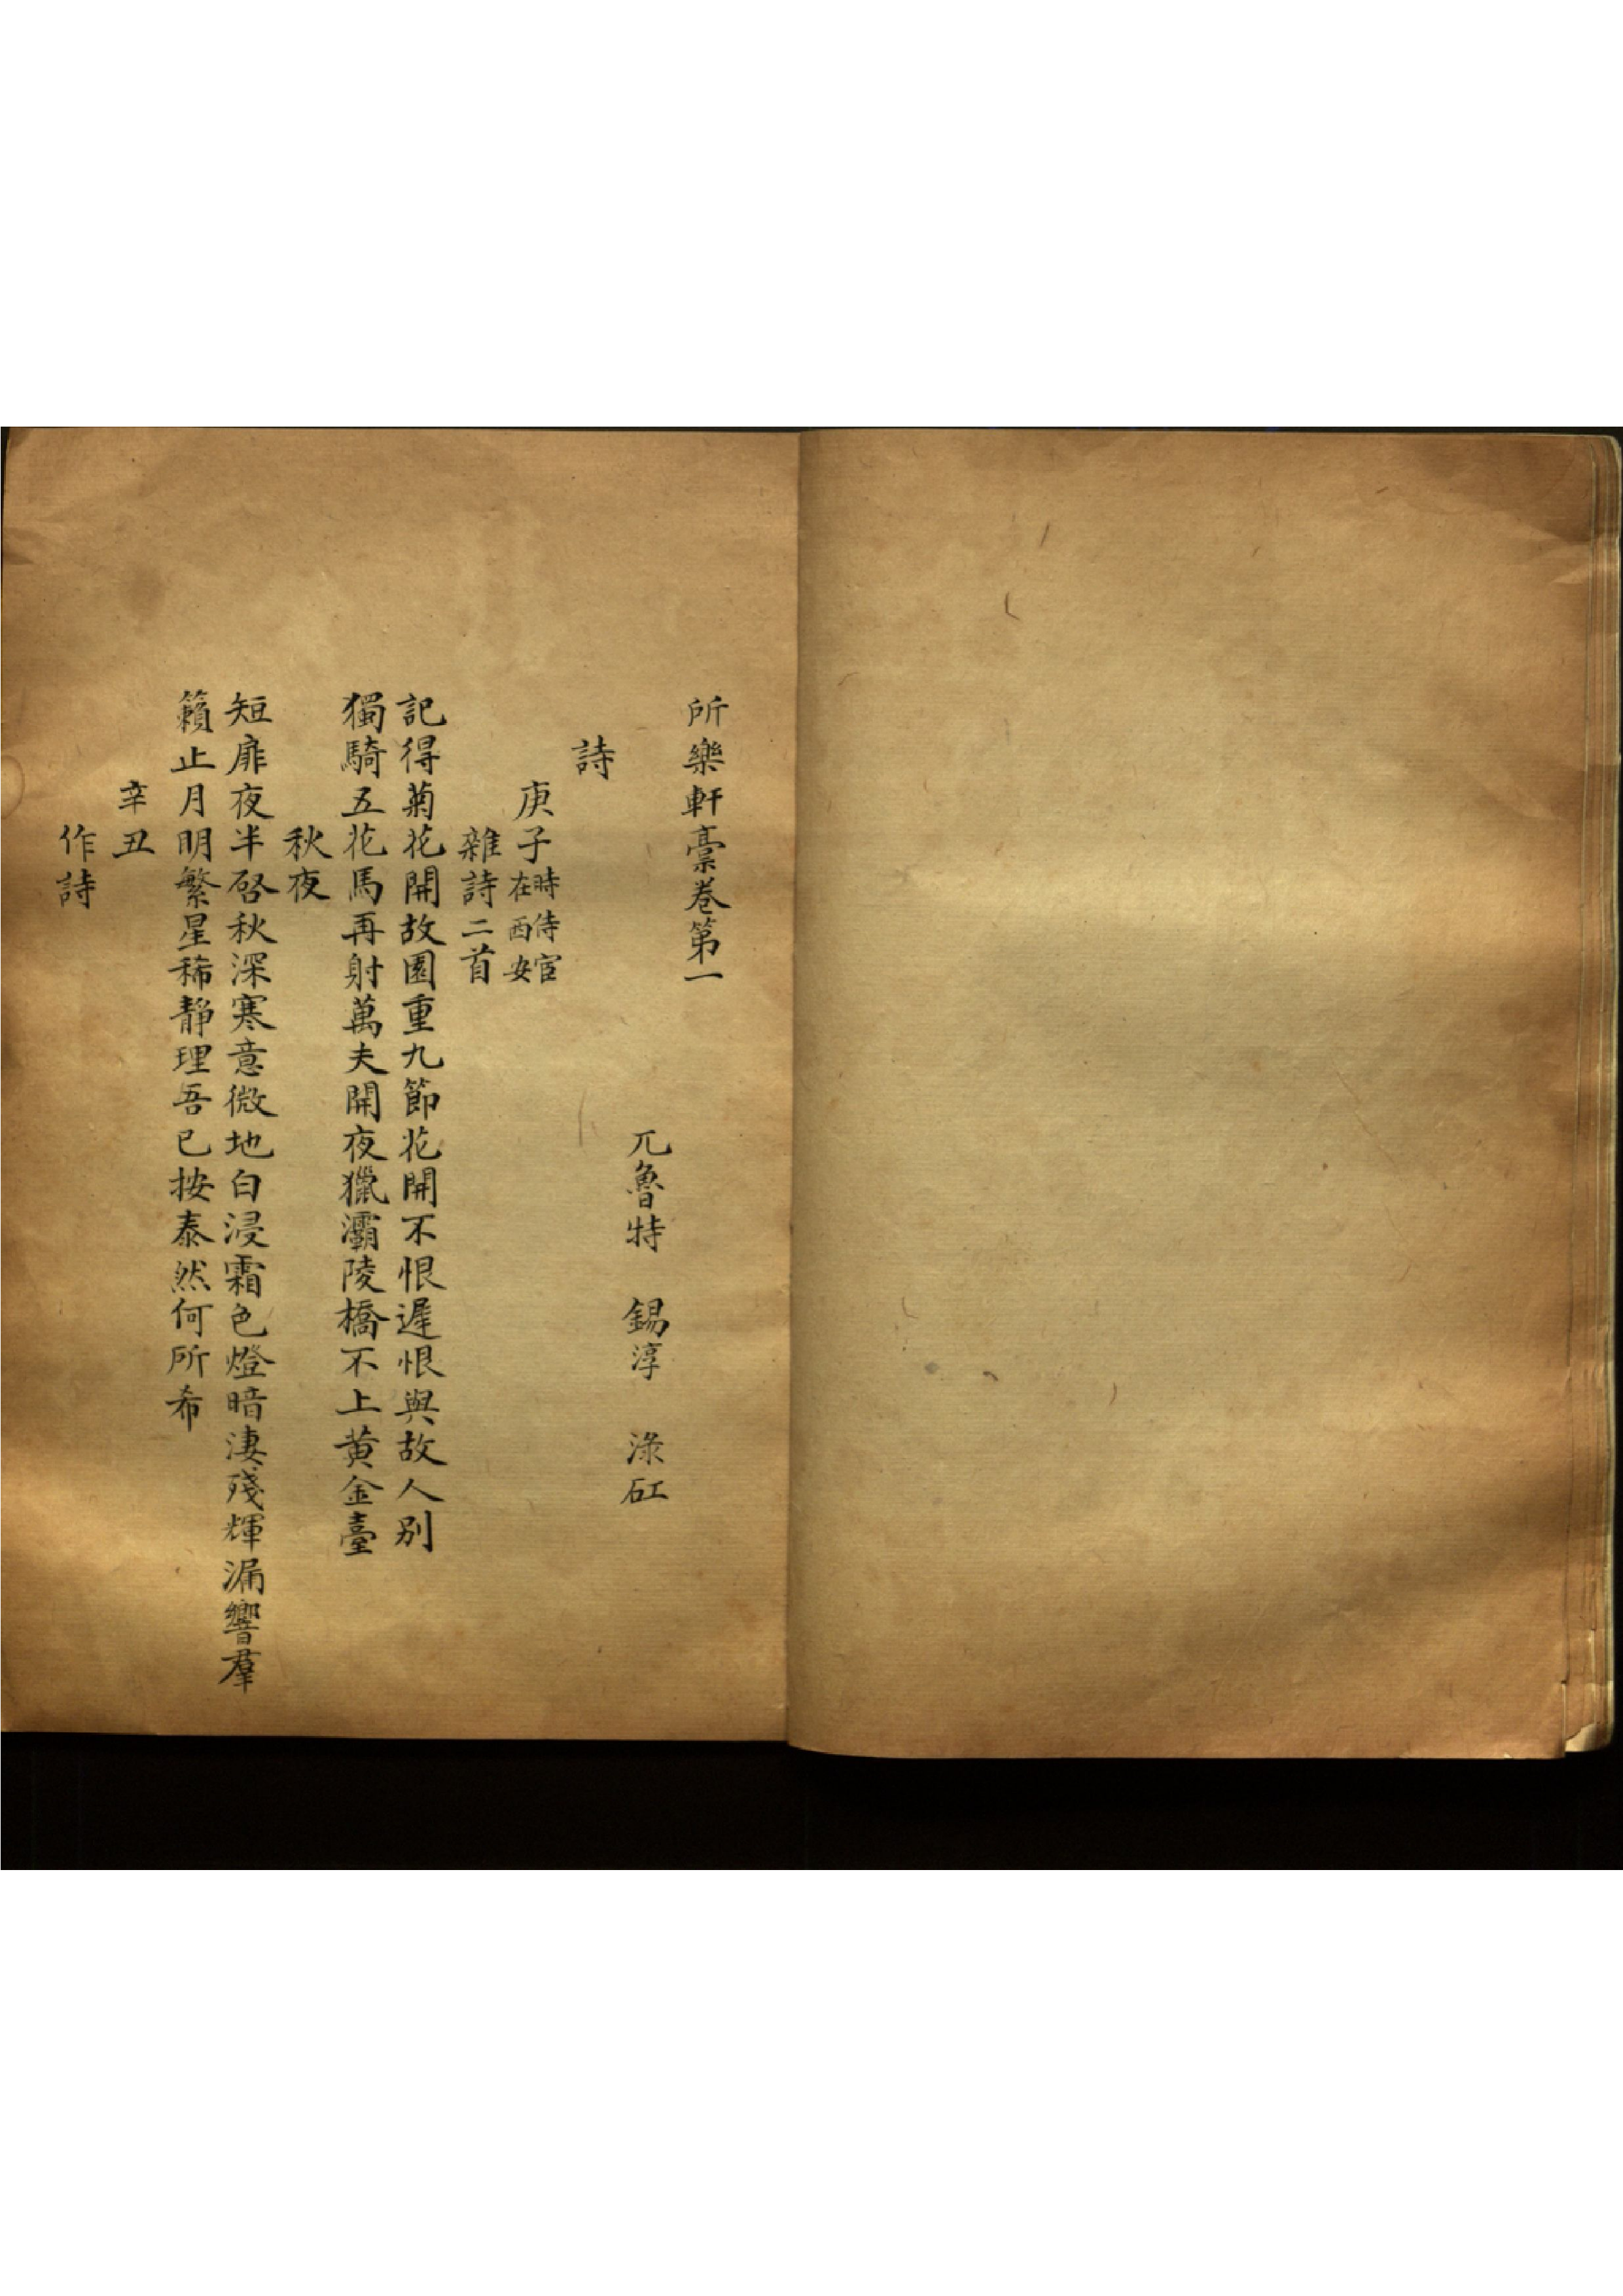 所樂軒稾卷第一
兀魯特　錫淳　淥矼
詩
庚子時侍宦在西安
雜詩二首
記得菊花開故園重九節花開不恨遲恨與故人別
獨騎五花馬再射萬夫開夜獵灞陵橋不上黃金臺
秋夜
短扉夜半啓秋深寒意微地白浸霜色燈暗淒殘輝漏響羣
籟止月明繁星稀靜理吾已按泰然何所希
辛丑
作詩